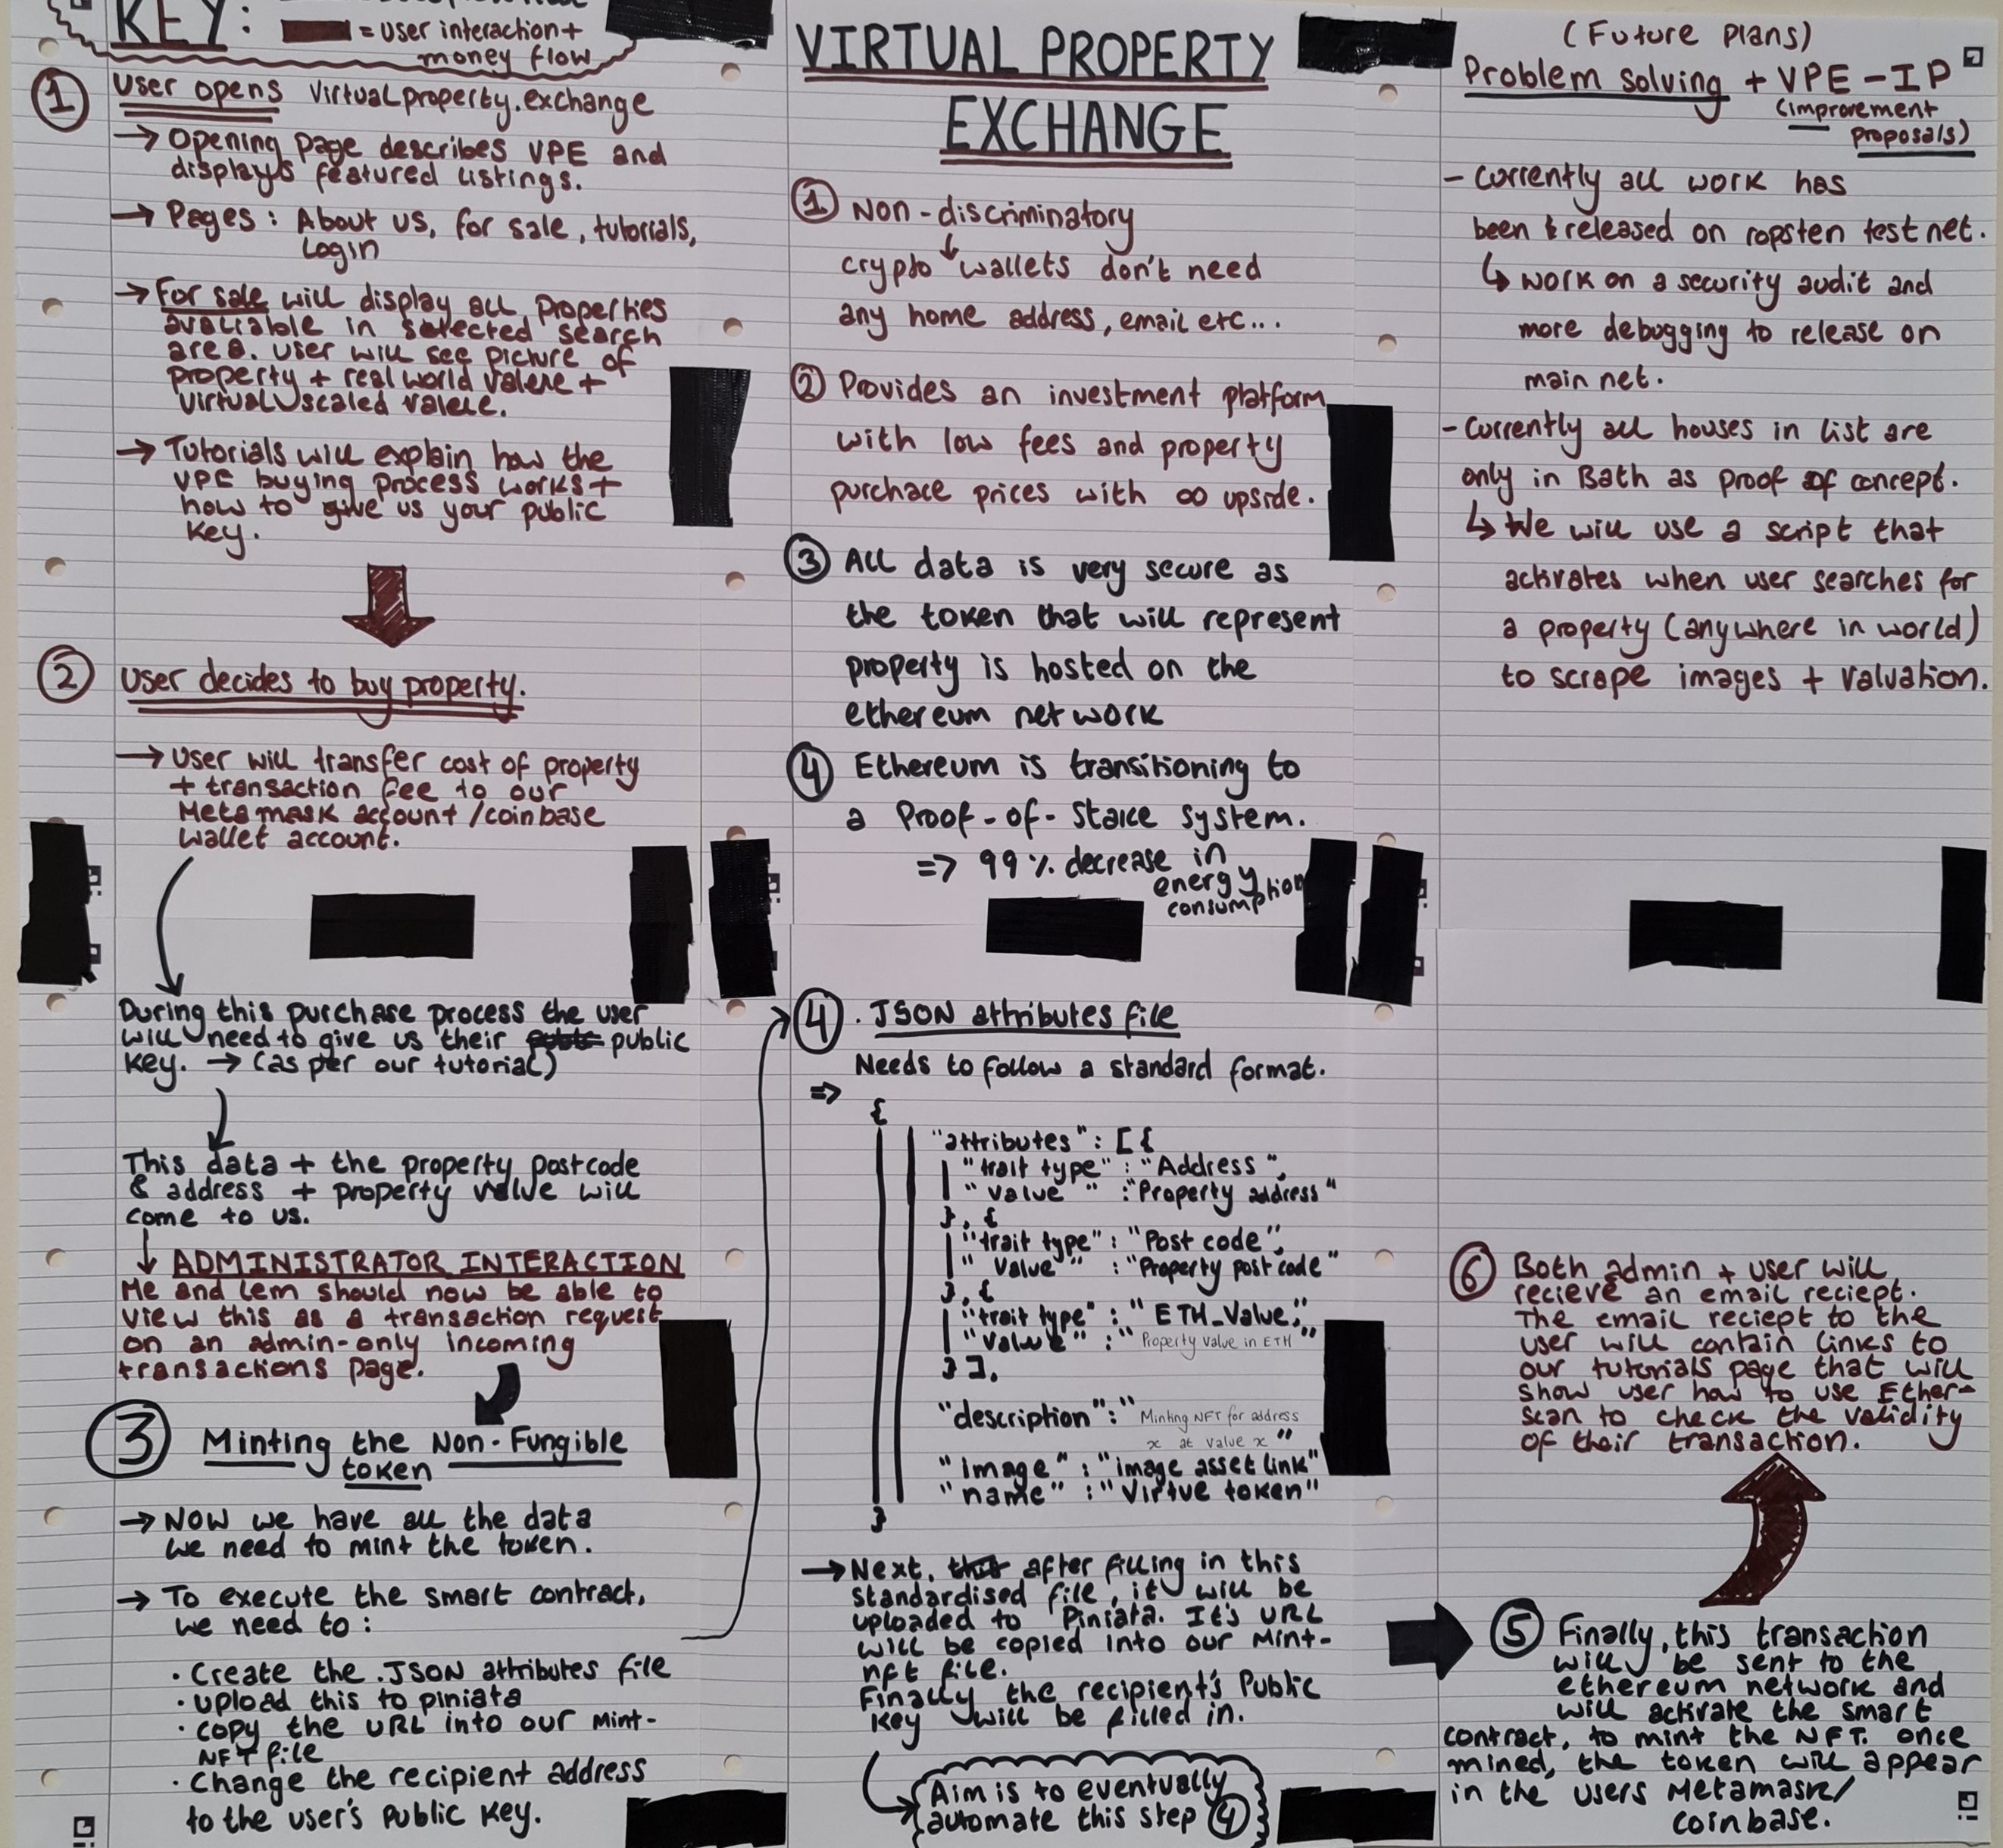 KEY:
= User interaction +
money flow
① User opens Virtualproperty.exchange
→ Opening page describes VPE and
displays featured listings.
→ Pages: About us, for sale, tutorials,
Login
→ For sale will display all properties
avaliable in selected search
area. User will see picture of
property + real world value +
Virtual scaled value.
→ Tutorials will explain how the
VPE buying process works +
how to give us your public
key.
② User decides to buy property.
→ User will transfer cost of property
+ transaction fee to our
Metamask account/coinbase
wallet account.
During this purchase process the user
will need to give us their public
key. → (as per our tutorial)
This data + the property postcode
& address + property value will
come to us.
↓ ADMINISTRATOR INTERACTION
Me and Lem should now be able to
view this as a transaction request
on an admin-only incoming
transactions page.
③ Minting the Non-Fungible
token
→ Now we have all the data
we need to mint the token.
→ To execute the smart contract,
we need to:
· Create the .JSON attributes file
· Upload this to piniata
· copy the URL into our Mint-
NFT file
· Change the recipient address
to the user's Public Key.
VIRTUAL PROPERTY
EXCHANGE
① Non-discriminatory
↓
crypto wallets don't need
any home address, email etc...
② Provides an investment platform
with low fees and property
purchace prices with ∞ upside.
③ All data is very secure as
the token that will represent
property is hosted on the
ethereum network
④ Ethereum is transitioning to
a Proof-of-Stake system.
=> 99% decrease in
energy
consumption
④ . JSON attributes file
Needs to follow a standard format.
=>
{
"attributes": [{
"trait type" : "Address",
"Value" : "Property address"
}, {
"trait type" : "Post code",
"Value" : "Property post code"
}, {
"trait type" : "ETH_Value",
"Value" : "Property Value in ETH"
}],
"description": "Minting NFT for address
x at value x"
"Image" : "image asset link"
"name" : "Virtue token"
}
→ Next, after filling in this
standardised file, it will be
uploaded to Piniata. It's URL
will be copied into our Mint-
nft file.
Finally the recipient's Public
Key will be filled in.
Aim is to eventually
automate this step ④
(Future Plans)
Problem solving + VPE-IP
(improvement
proposals)
- Currently all work has
been released on ropsten test net.
↳ work on a security audit and
more debugging to release on
main net.
- Currently all houses in list are
only in Bath as proof of concept.
↳ We will use a script that
activates when user searches for
a property (anywhere in world)
to scrape images + valuation.
⑥ Both admin + user will
recieve an email reciept.
The email reciept to the
user will contain links to
our tutorials page that will
show user how to use Ether-
scan to check the validity
of their transaction.
⑤ Finally, this transaction
will be sent to the
ethereum network and
will activate the smart
contract, to mint the NFT. once
mined, the token will appear
in the users Metamask/
coinbase.